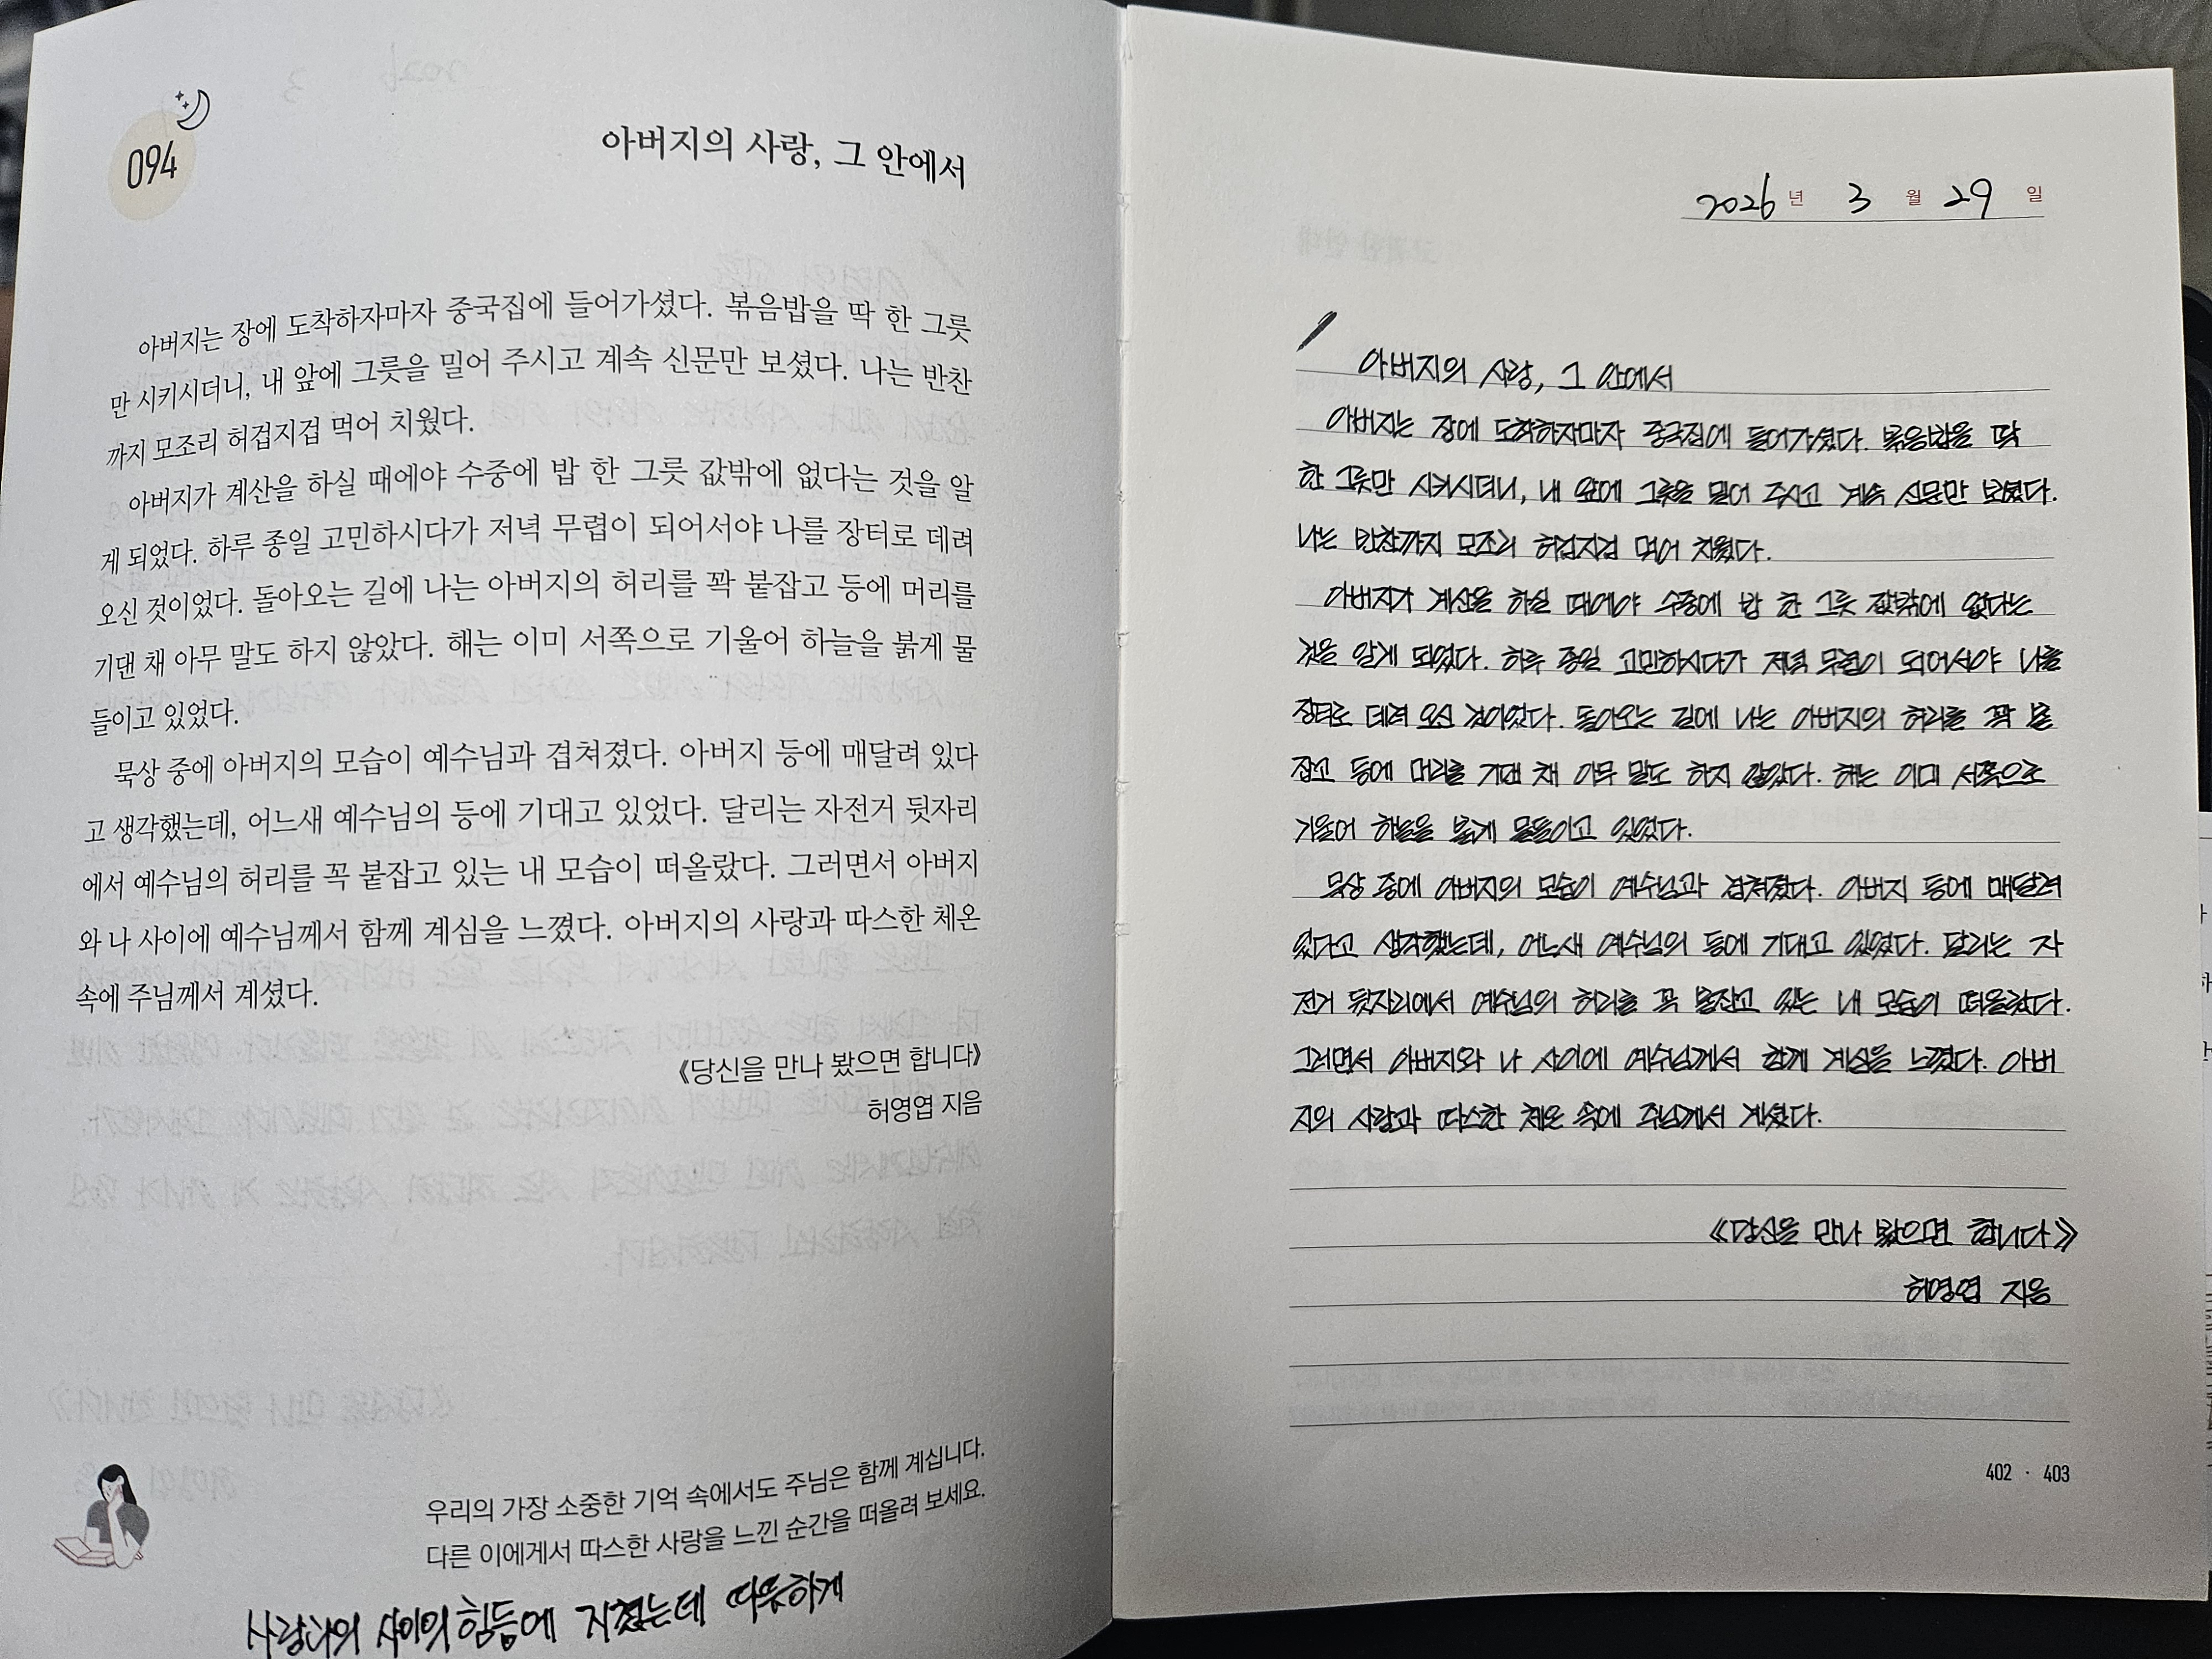 094
아버지의 사랑, 그 안에서
아버지는 장에 도착하자마자 중국집에 들어가셨다. 볶음밥을 딱 한 그릇
만 시키시더니, 내 앞에 그릇을 밀어 주시고 계속 신문만 보셨다. 나는 반찬
까지 모조리 허겁지겁 먹어 치웠다.
아버지가 계산을 하실 때에야 수중에 밥 한 그릇 값밖에 없다는 것을 알
게 되었다. 하루 종일 고민하시다가 저녁 무렵이 되어서야 나를 장터로 데려
오신 것이었다. 돌아오는 길에 나는 아버지의 허리를 꽉 붙잡고 등에 머리를
기댄 채 아무 말도 하지 않았다. 해는 이미 서쪽으로 기울어 하늘을 붉게 물
들이고 있었다.
묵상 중에 아버지의 모습이 예수님과 겹쳐졌다. 아버지 등에 매달려 있다
고 생각했는데, 어느새 예수님의 등에 기대고 있었다. 달리는 자전거 뒷자리
에서 예수님의 허리를 꼭 붙잡고 있는 내 모습이 떠올랐다. 그러면서 아버지
와 나 사이에 예수님께서 함께 계심을 느꼈다. 아버지의 사랑과 따스한 체온
속에 주님께서 계셨다.
《당신을 만나 봤으면 합니다》
허영엽 지음
우리의 가장 소중한 기억 속에서도 주님은 함께 계십니다.
다른 이에게서 따스한 사랑을 느낀 순간을 떠올려 보세요.
사이의 힘듦에 지쳤는데 따뜻하게
2026년 3월 29일
아버지의 사랑, 그 안에서
아버지는 장에 도착하자마자 중국집에 들어가셨다. 볶음밥을 딱
한 그릇만 시키시더니, 내 앞에 그릇을 밀어 주시고 계속 신문만 보셨다.
나는 반찬까지 모조리 허겁지겁 먹어 치웠다.
아버지가 계산을 하실 때에야 수중에 밥 한 그릇 값밖에 없다는
것을 알게 되었다. 하루 종일 고민하시다가 저녁 무렵이 되어서야 나를
장터로 데려 오신 것이었다. 돌아오는 길에 나는 아버지의 허리를 꽉 붙
잡고 등에 머리를 기댄 채 아무 말도 하지 않았다. 해는 이미 서쪽으로
기울어 하늘을 붉게 물들이고 있었다.
묵상 중에 아버지의 모습이 예수님과 겹쳐졌다. 아버지 등에 매달려
있다고 생각했는데, 어느새 예수님의 등에 기대고 있었다. 달리는 자
전거 뒷자리에서 예수님의 허리를 꼭 붙잡고 있는 내 모습이 떠올랐다.
그러면서 아버지와 나 사이에 예수님께서 함께 계심을 느꼈다. 아버
지의 사랑과 따스한 체온 속에 주님께서 계셨다.
《당신을 만나 봤으면 합니다》
허영엽 지음
402 · 403